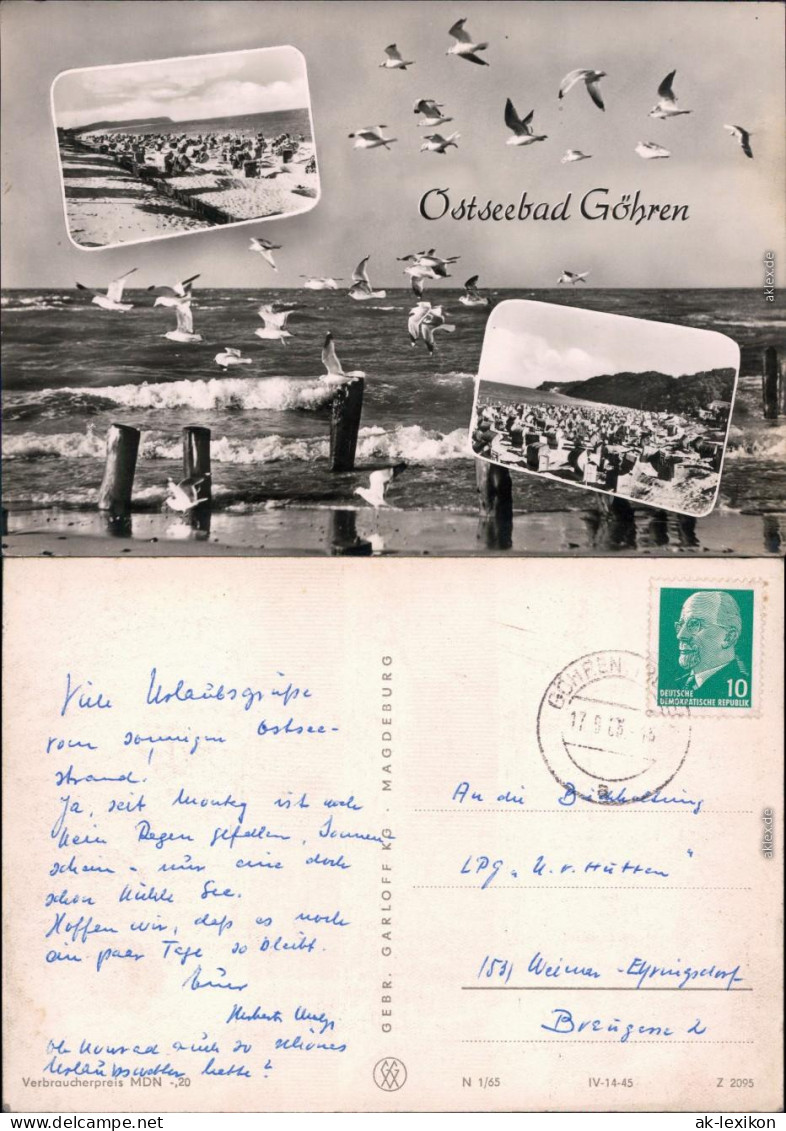 Ostseebad Göhren
akfex.de
Viele Urlaubsgrüße
vom sonnigen Ostsee-
strand!
Ja, seit Montag ist noch
kein Regen gefallen, Sonnen
schein - nur eine doch
schon kühle See.
Hoffen wir, daß es noch
ein paar Tage so bleibt.
Euer
Herbert
Ob Konrad auch so schönes
Urlaubswetter hatte?
Verbraucherpreis MDN -,20
GEBR. GARLOFF KG · MAGDEBURG
10
DEUTSCHE
DEMOKRATISCHE REPUBLIK
GÖHREN
An die Buchhaltung
LPG „U. v. Hutten"
1531 Weimar-Ehringsdorf
Braugasse 2
akfex.de
N 1/65 IV-14-45 Z 2095
ak-lexikon